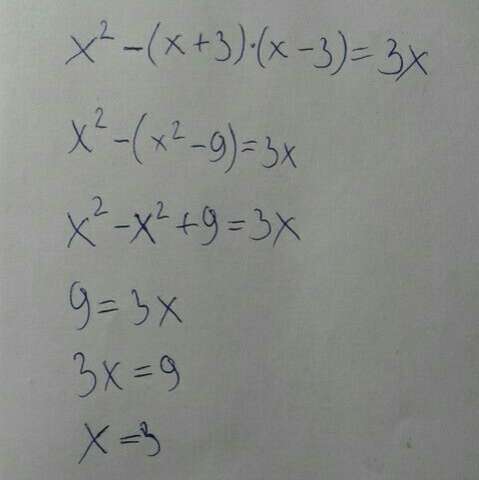 x² - (x + 3) · (x - 3) = 3x
x² - (x² - 9) = 3x
x² - x² + 9 = 3x
9 = 3x
3x = 9
x = 3